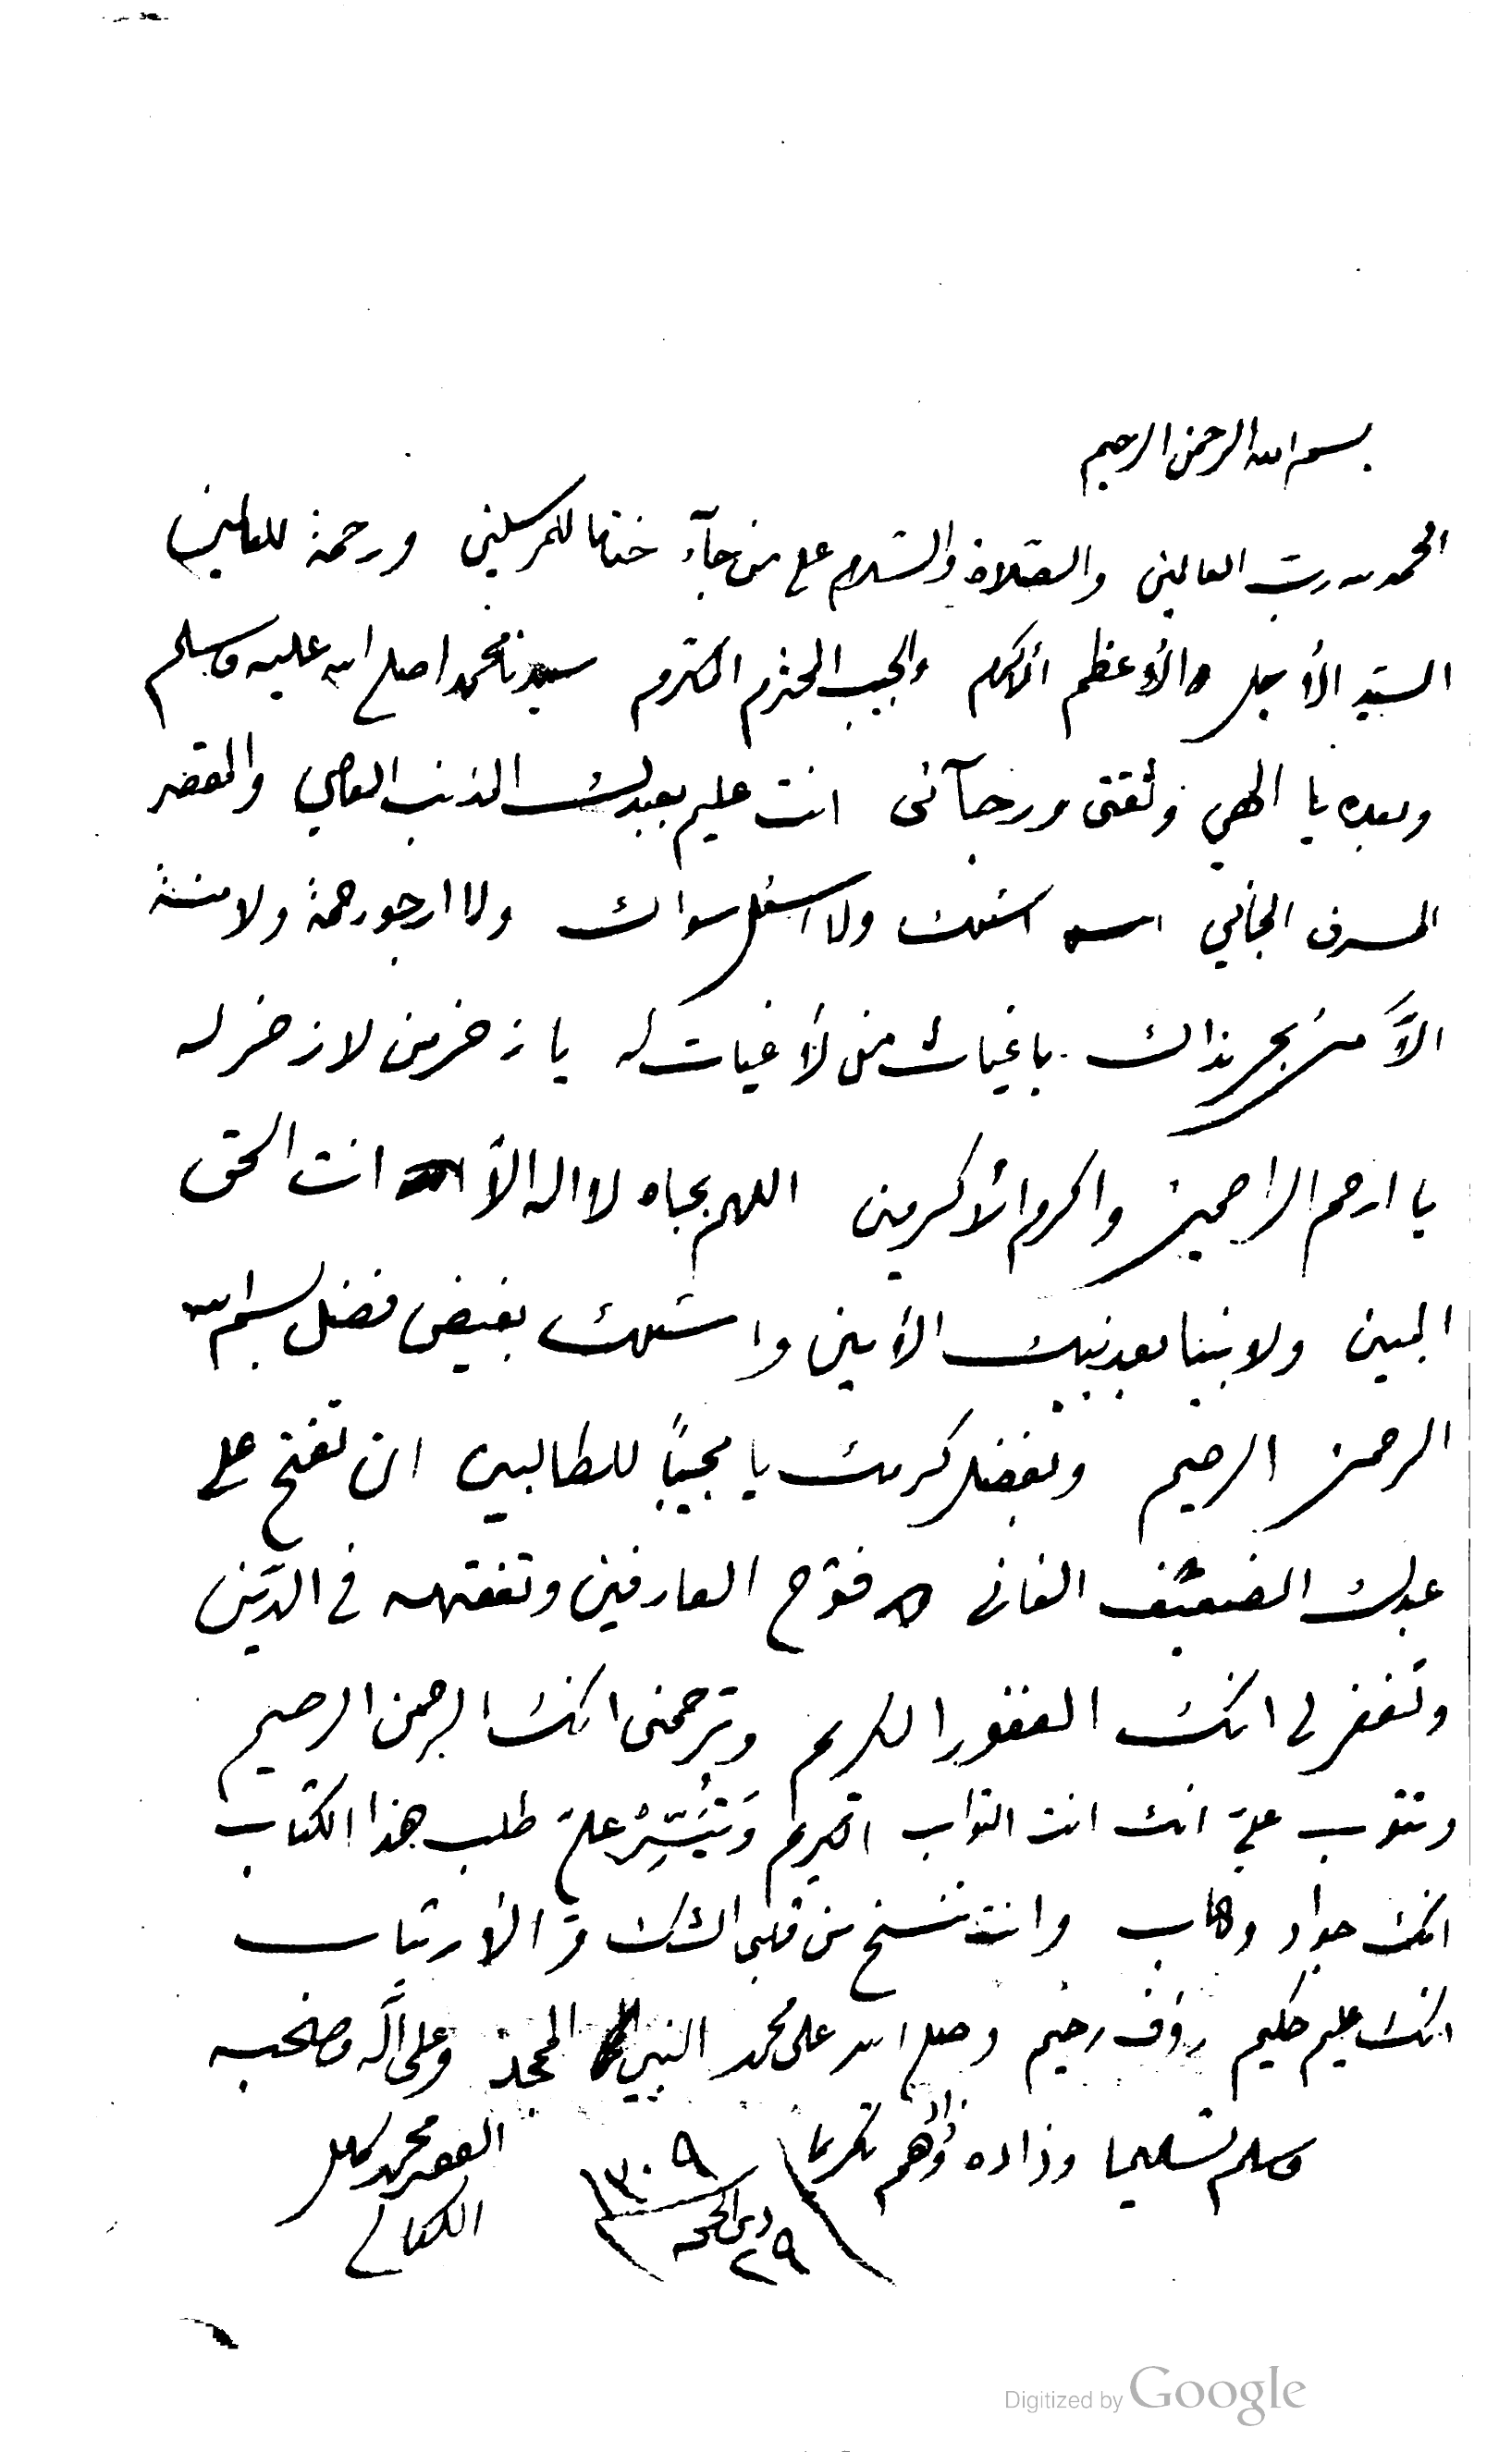 بسم الله الرحمن الرحيم
الحمد لله رب العالمين والصّلاة والسّلام على من جآء ختاما للمرسلين ورحمة للعالمين
السيّد الأجل والأعظم الأكرم والحبيب المحترم المكترم سيدنا محمدا صلى الله عليه وسلم
وبعده يا الهي وثقتى ورجآئى انت عليم بعبدك المذنب العاصي والمقصر
المسرف الجاني اسئلك ولا اسئل سواك ولا ارجو رحمة ولا منة
الاّ من بحر نداك يا غياث من لا غياث له يا زخر من لا زخر له
يا ارحم الراحمين واكرم الأكرمين اللهم بجاه لا اله الا انت الحق
المبين ولا نبيا بعد نبيك الأمين واسئلك بفيض فضل بسم الله
الرحمن الرحيم وبفضل كرمك يا مجيبًا للطالبين ان تفتح على
عبدك الضعيف الفانى فتوح العارفين وتفقهه في الدّين
وتغفر لى انك الغفور الكريم وترحمنى انك الرحمن الرحيم
وتتوب عليّ انك انت التواب الكريم وَتُيَسِّرْ عليّ طلب هذا الكتاب
انك جواد وهاب وانت تنسخ من قلبى الشك و الأرتياب
انك عليم حكيم رؤف رحيم وصلى الله على محمد النبي الممجد وعلى آله وصحبه
وسلم تسليما وزاده وزادهم تكريما
١٣٠٩
٢٩ ذى الحجه
الفقير محمد كامل